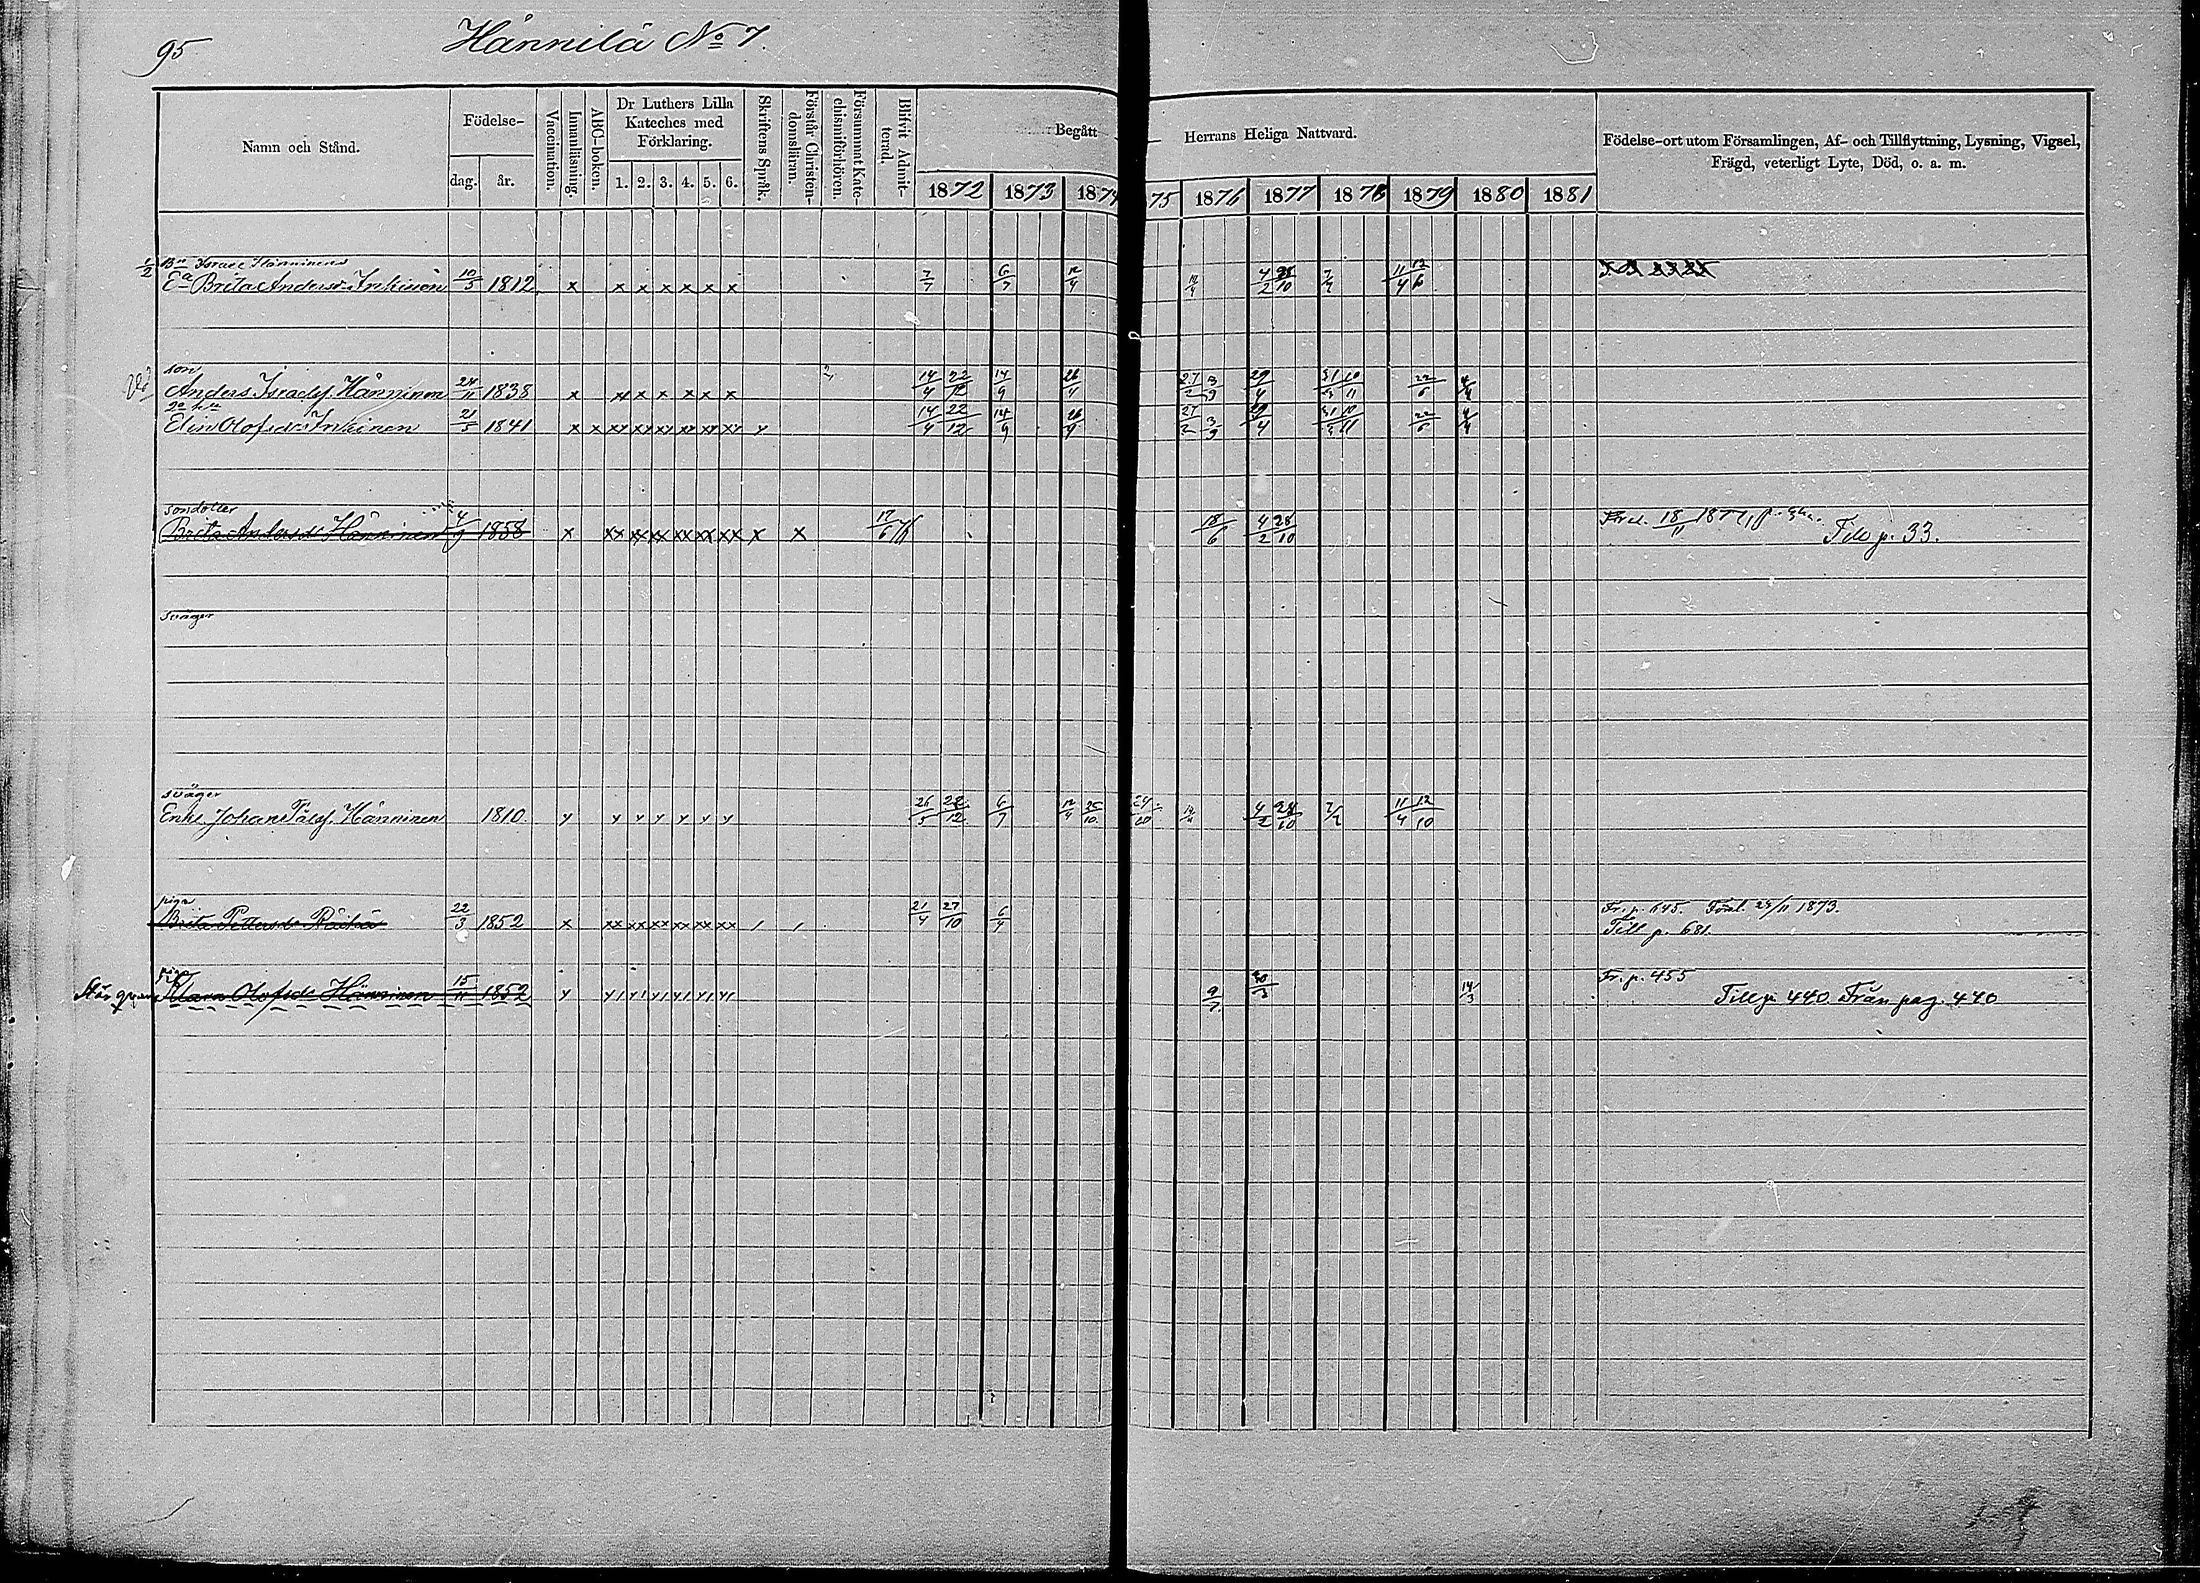 95
Hännilä No 7.
Namn och Stånd.
Födelse-
dag. år.
Vaccination.
Innanläsning.
ABC-boken.
Dr Luthers Lilla Kateches med Förklaring.
1. 2. 3. 4. 5. 6.
Skriftens Språk.
Förstår Christendomsläran.
Försummat Katechismiförhören.
Blifvit Admitterad.
Begått
Herrans Heliga Nattvard.
1872 1873 1874 75 1876 1877 1878 1879 1880 1881
Födelse-ort utom Församlingen, Af- och Tillflyttning, Lysning, Vigsel,
Frägd, veterligt Lyte, Död, o. a. m.
1/2 Bn Israel Hänninens
Ea Brita Andersdr Inkinen 10/5 1812 x x x x x x x 7/7 6/7 12/4 4/2 28/10 11/4 12/6
son
Anders Israelsf. Hänninen 24/11 1838 x 14/4 22/12 14/9 26/4 27/2 3/9 29/4 22/6
Elin Olofsdr Inkinen 21/5 1841 14/4 22/12 14/9 26/4 27/2 3/9 29/4 22/6
sondotter
Brita Andersdr Hänninen 4/9 1858 x xx xx xx xx xx xx x x 17/6 18/6 4/2 28/10 18/11 1877, Till p. 33.
svåger
svåger
Enkl. Johan Pålsf. Hänninen 1810 26/5 22/12 6/7 12/4 25/10 24/10 4/2 28/10 11/4 12/10
piga
Brita Pettersdr Räihä 22/3 1852 x xx xx xx xx xx xx 21/4 27/10 6/4 Fr. p. 645. Förel. 24/11 1873.
Till p. 681.
piga
Står qvar Klara Olofsdr Hänninen 15/11 1852 9/7 30/3 14/3 Fr. p. 455
Till p. 440 Från pag. 440